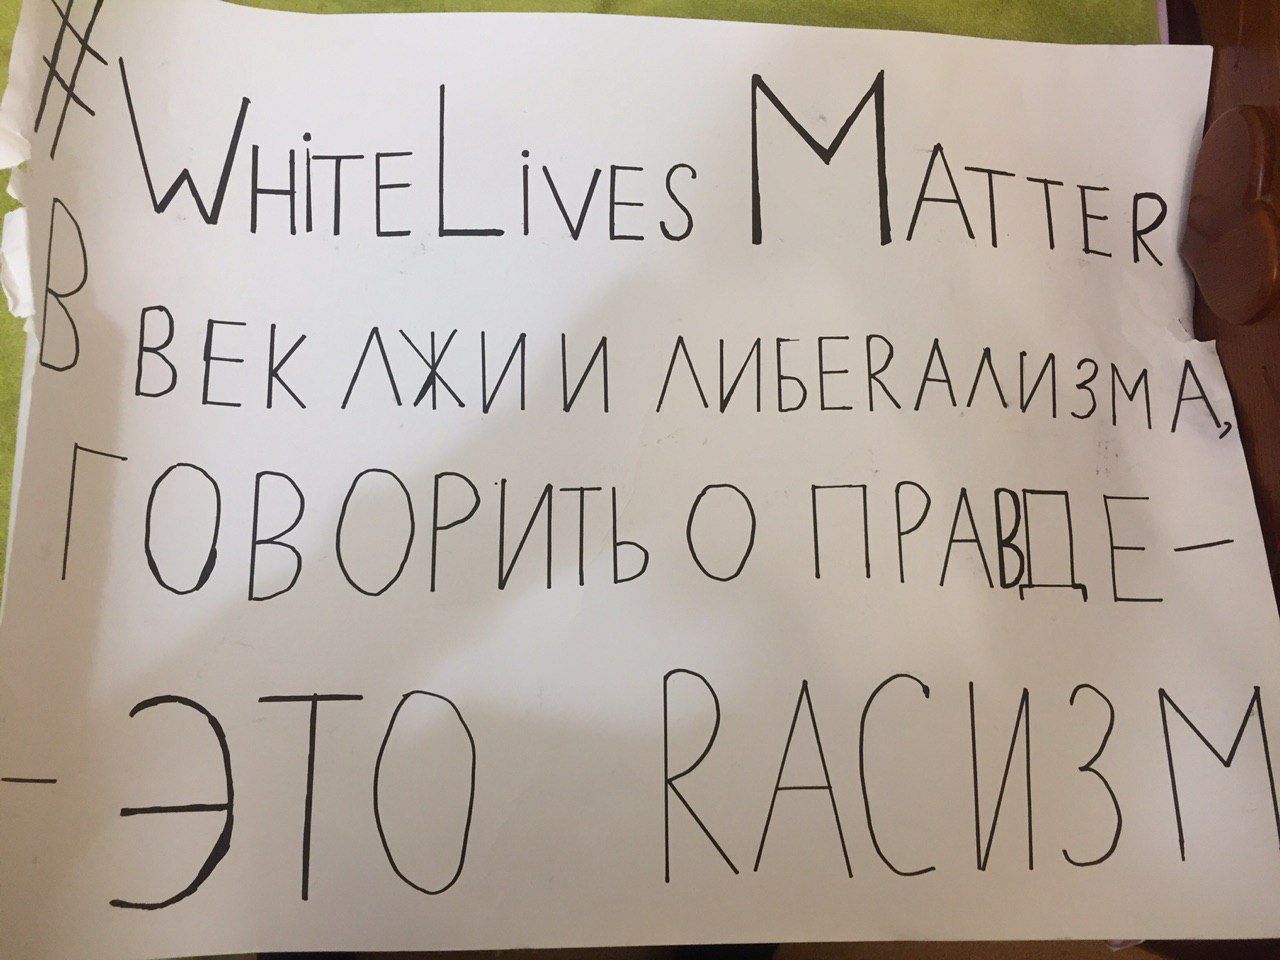 #WHiTELiVES MATTER
В ВЕК ЛЖИ И ЛИБЕRАЛИЗМА,
ГОВОРИТЬ О ПРАВДЕ–
–ЭТО RАСИЗМ